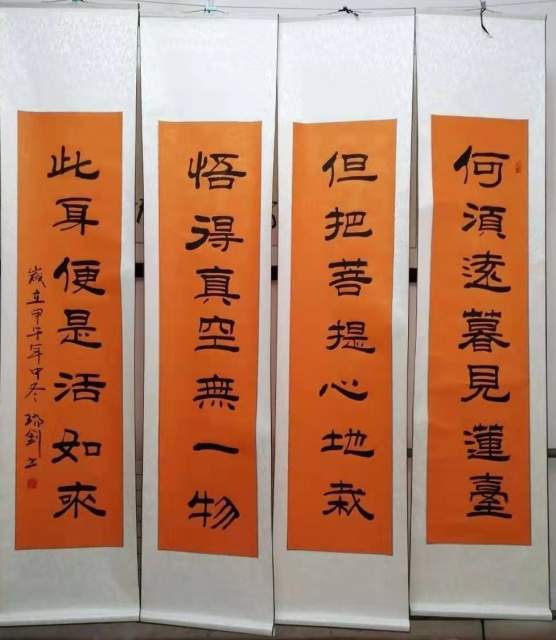 何須遠暮見蓮臺
但把菩提心地栽
悟得真空無一物
此身便是活如來
歲在甲午年中冬